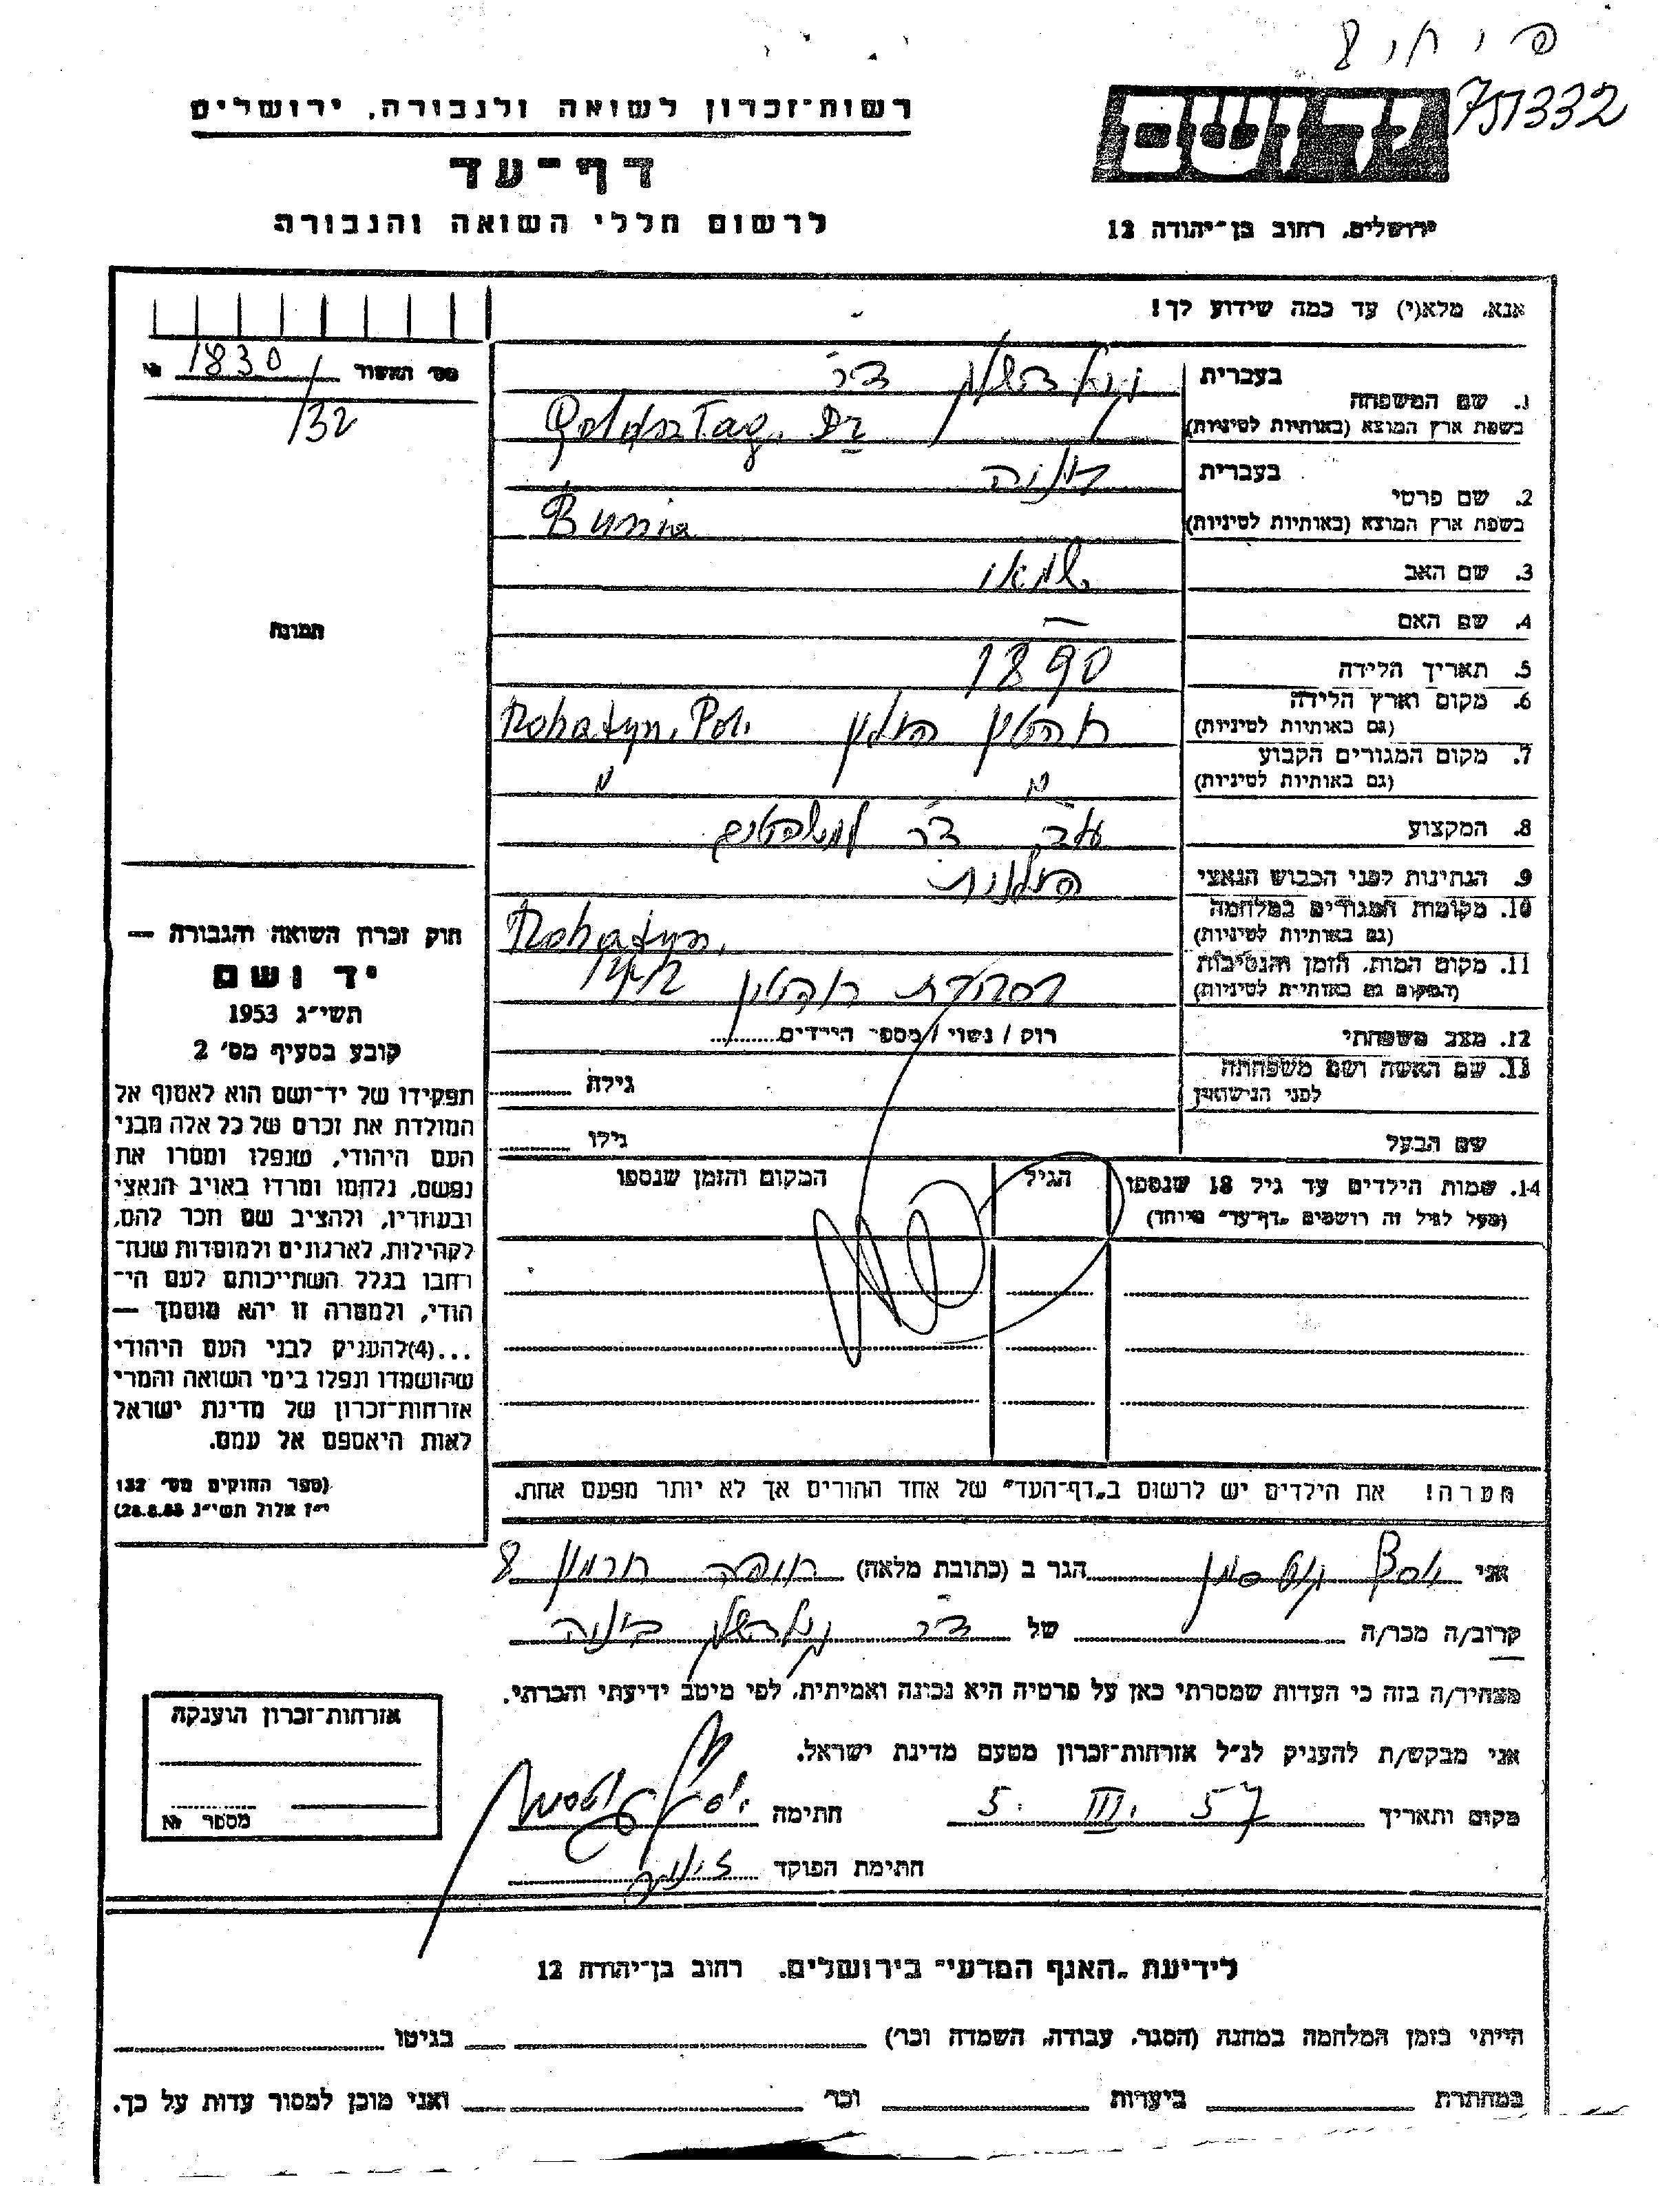 751332
יד ושם
ירושלים, רחוב בן־יהודה 12
רשות־זכרון לשואה ולגבורה, ירושלים
דף־עד
לרשום חללי השואה והגבורה
אנא, מלא(י) עד כמה שידוע לך!
מס׳ האשור 1830 №
/32
תמונה
1. שם המשפחה
בעברית גולדשלג ד״ר
בשפת ארץ המוצא (באותיות לטיניות)
2. שם פרטי
בעברית
בשפת ארץ המוצא (באותיות לטיניות) Bunia
3. שם האב
4. שם האם —
5. תאריך הלידה 1890
6. מקום וארץ הלידה רוהטין פולין Rohatyn, Pol.
(גם באותיות לטיניות)
7. מקום המגורים הקבוע
(גם באותיות לטיניות)
8. המקצוע
9. הנתינות לפני הכבוש הנאצי פולנית
10. מקומות המגורים במלחמה Rohatyn,
(גם באותיות לטיניות)
11. מקום המות, הזמן והנסיבות רוהטין 1942
(המקום גם באותיות לטיניות)
12. מצב משפחתי רווק / נשוי / מספר הילדים
13. שם האשה ושם משפחתה גילה
לפני הנישואין
שם הבעל גילו
14. שמות הילדים עד גיל 18 שנספו הגיל המקום והזמן שנספו
(מעל לגיל זה רושמים „דף־עד״ מיוחד)
חוק זכרון השואה והגבורה —
יד ושם
תשי״ג 1953
קובע בסעיף מס׳ 2
תפקידו של יד־ושם הוא לאסוף אל
המולדת את זכרם של כל אלה מבני
העם היהודי, שנפלו ומסרו את
נפשם, נלחמו ומרדו באויב הנאצי
ובעוזריו, ולהציב שם וזכר להם,
לקהילות, לארגונים ולמוסדות שנח־
רבו בגלל השתייכותם לעם הי־
הודי, ולמטרה זו יהא מוסמך —
...(4)להעניק לבני העם היהודי
שהושמדו ונפלו בימי השואה והמרי
אזרחות־זכרון של מדינת ישראל
לאות היאספם אל עמם.
(ספר החוקים מס׳ 132
י״ז אלול תשי״ג 28.8.53)
הערה! את הילדים יש לרשום ב„דף־העד״ של אחד ההורים אך לא יותר מפעם אחת.
אני יוסף הגר ב (כתובת מלאה) 8
קרוב/ה מכר/ה של ד״ר גולדשלג
מצהיר/ה בזה כי העדות שמסרתי כאן על פרטיה היא נכונה ואמיתית, לפי מיטב ידיעתי והכרתי.
אני מבקש/ת להעניק לנ״ל אזרחות־זכרון מטעם מדינת ישראל.
מקום ותאריך 5. III. 57 חתימה
חתימת הפוקד
אזרחות־זכרון הוענקה
מספר №
לידיעת „האגף המדעי״ בירושלים, רחוב בן־יהודה 12
הייתי בזמן המלחמה במחנה (הסגר, עבודה, השמדה וכו׳) בגיטו
במחתרת ביערות וכו׳ ואני מוכן למסור עדות על כך.